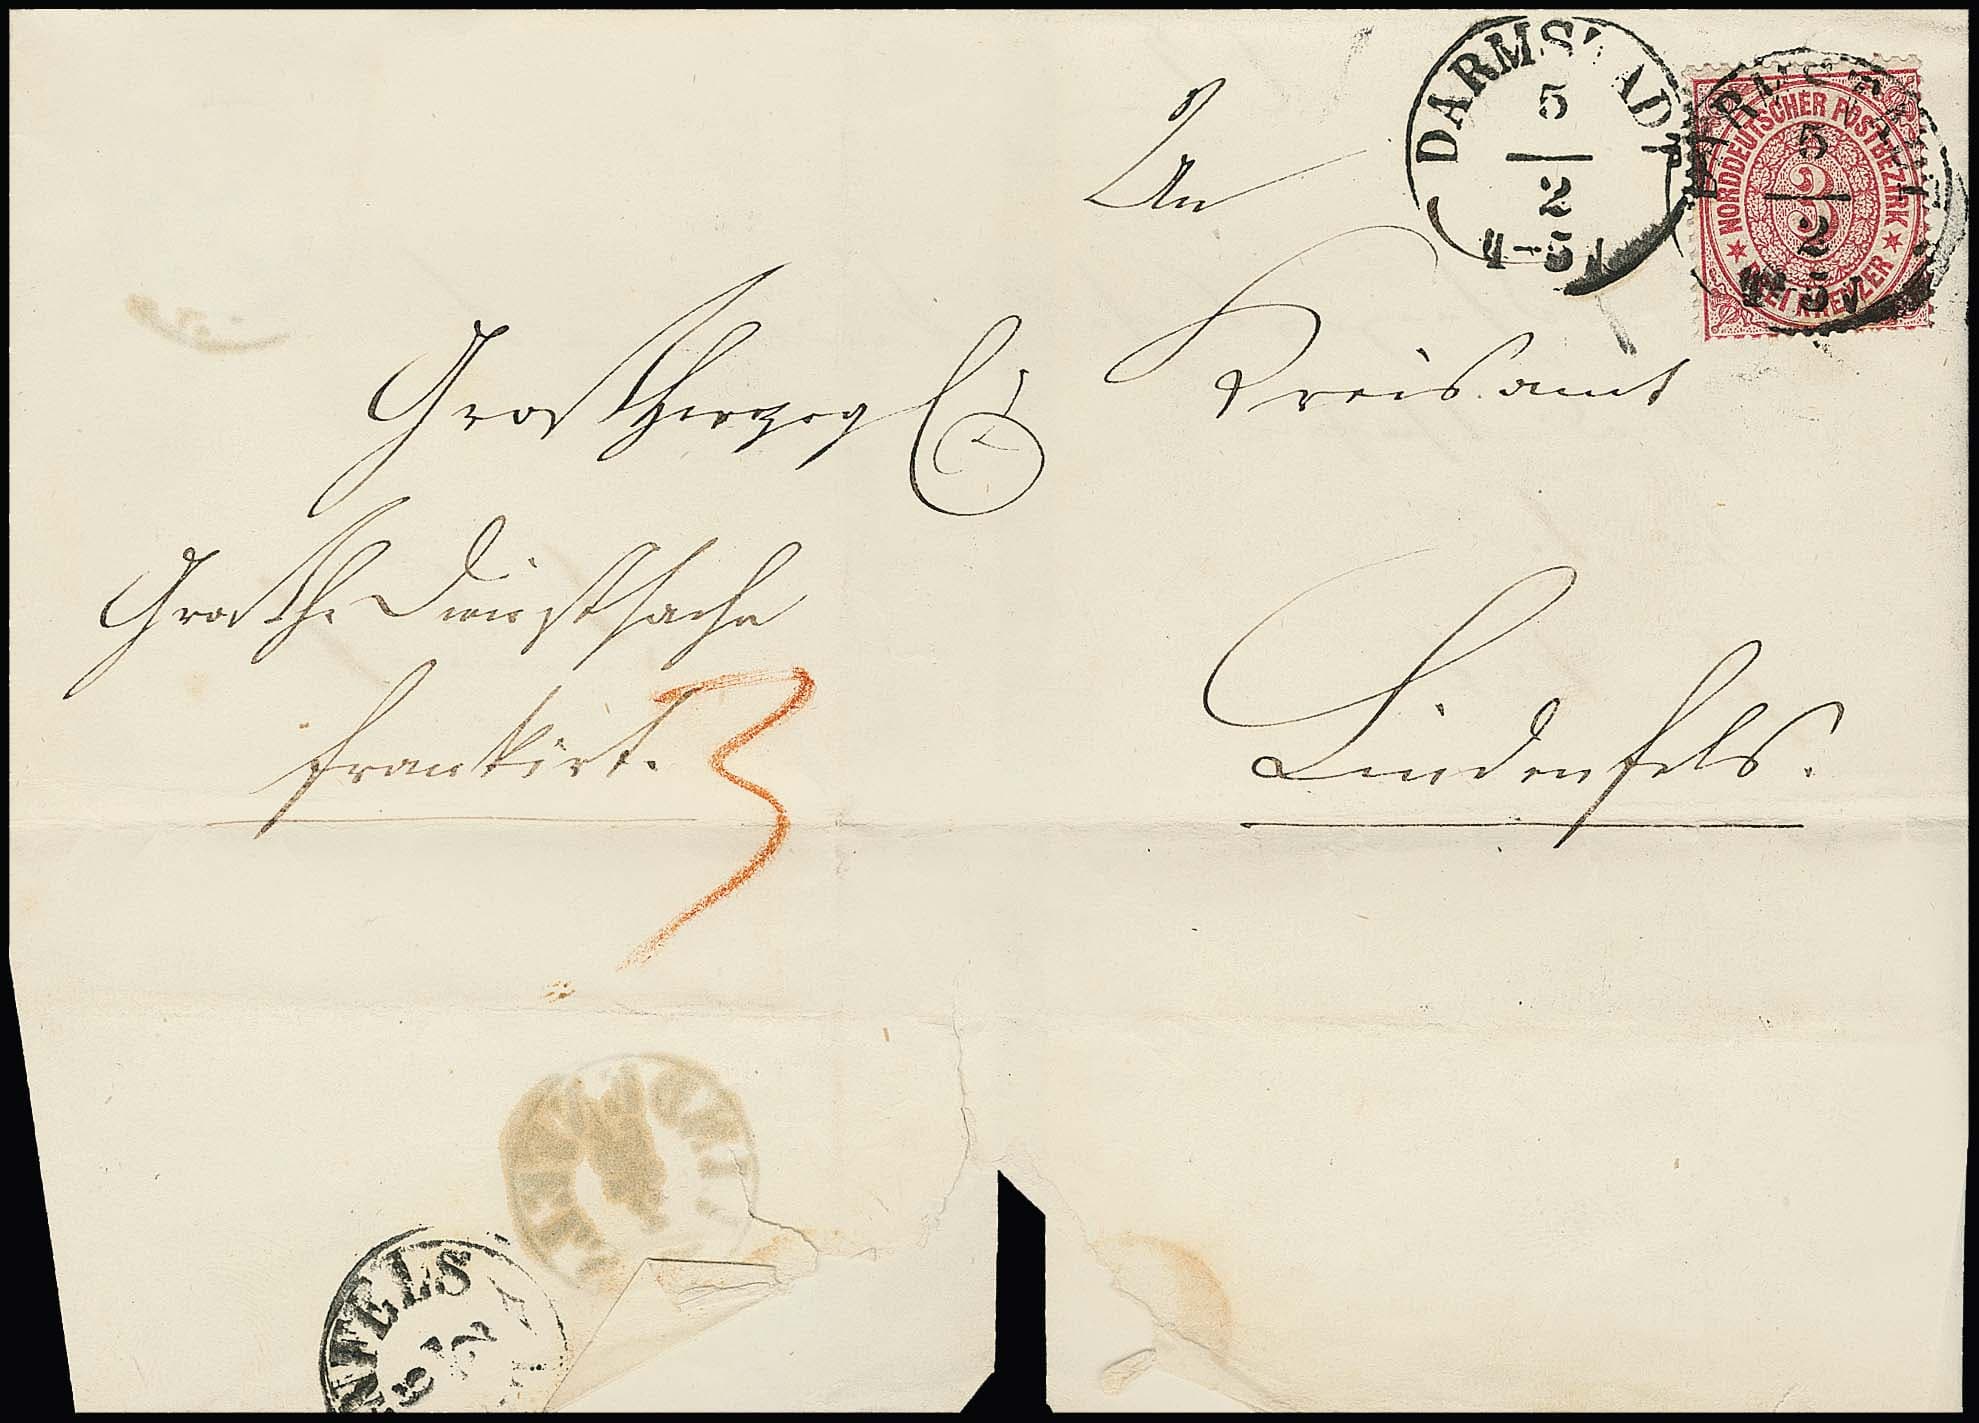 DARMSTADT
5
2
4-5N
DARMSTADT
5
2
4-5N
NORDDEUTSCHER POSTBEZIRK
3
DREI KREUZER
An
Großherzogl. Kreisamt
Großh. Dienstsache
frankirt.
3
Lindenfels.
NFELS
2